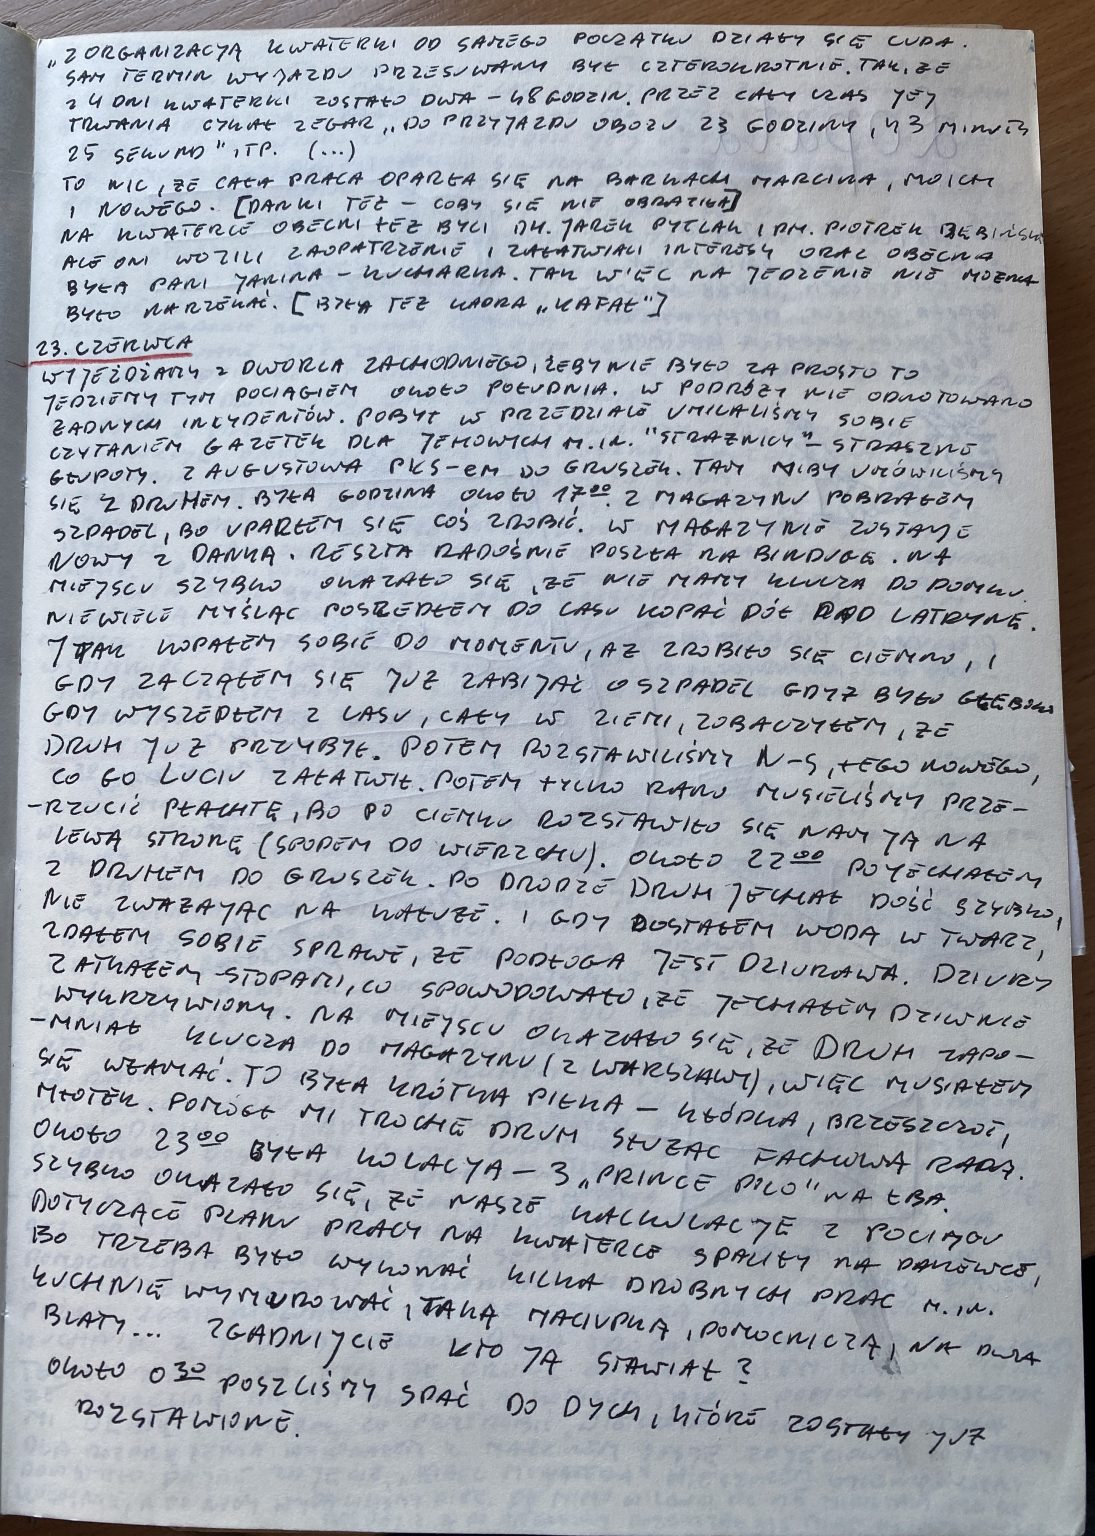 „Z ORGANIZACJĄ KWATERKI OD SAMEGO POCZĄTKU DZIAŁY SIĘ CUDA.
SAM TERMIN WYJAZDU PRZESUWANY BYŁ CZTEROKROTNIE. TAK, ŻE
Z 4 DNI KWATERKI ZOSTAŁO DWA – 48 GODZIN. PRZEZ CAŁY CZAS JEJ
TRWANIA CYKAŁ ZEGAR „DO PRZYJAZDU OBOZU 23 GODZINY, 43 MINUTY
25 SEKUND" ITP. (...)
TO NIC, ŻE CAŁA PRACA OPARŁA SIĘ NA BARKACH MARCINA, MOICH
I NOWEGO. [DANKI TEŻ – COBY SIĘ NIE OBRAZIŁA]
NA KWATERCE OBECNI TEŻ BYLI DH. JAREK PYTLAK I PM. PIOTREK DĘBIŃSKI
ALE ONI WOZILI ZAOPATRZENIE I ZAŁATWIALI INTERESY ORAZ OBECNA
BYŁA PANI JANINA – KUCHARKA. TAK WIĘC NA JEDZENIE NIE MOŻNA
BYŁO NARZEKAĆ. [BYŁA TEŻ KADRA „KAFAŁ"]
23. CZERWCA
WYJEŻDŻAMY Z DWORCA ZACHODNIEGO, ŻEBY NIE BYŁO ZA PROSTO TO
JEDZIEMY TYM POCIĄGIEM OKOŁO POŁUDNIA. W PODRÓŻY NIE ODNOTOWANO
ŻADNYCH INCYDENTÓW. POBYT W PRZEDZIALE UMILALIŚMY SOBIE
CZYTANIEM GAZETEK DLA JEHOWYCH M.IN. "STRAŻNICY" – STRASZNE
GŁUPOTY. Z AUGUSTOWA PKS-EM DO GRUSZEK. TAM NIBY UMÓWILIŚMY
SIĘ Z DRUHEM. BYŁA GODZINA OKOŁO 17⁰⁰. Z MAGAZYNU POBRAŁEM
SZPADEL, BO UPARŁEM SIĘ COŚ ZROBIĆ. W MAGAZYNIE ZOSTAJE
NOWY Z DANKĄ. RESZTA RADOŚNIE POSZŁA NA BINDUGĘ. NA
MIEJSCU SZYBKO OKAZAŁO SIĘ, ŻE NIE MAMY KLUCZA DO DOMKU.
NIEWIELE MYŚLĄC POSZEDŁEM DO LASU KOPAĆ DÓŁ POD LATRYNĘ.
I TAK KOPAŁEM SOBIE DO MOMENTU, AŻ ZROBIŁO SIĘ CIEMNO, I
GDY ZACZĄŁEM SIĘ JUŻ ZABIJAĆ O SZPADEL GDYŻ BYŁO GŁĘBOKO
GDY WYSZEDŁEM Z LASU, CAŁY W ZIEMI, ZOBACZYŁEM, ŻE
DRUH JUŻ PRZYBYŁ. POTEM ROZSTAWILIŚMY N-S, TEGO NOWEGO,
CO GO LUCIU ZAŁATWIŁ. POTEM TYLKO RANO MUSIELIŚMY PRZE-
-RZUCIĆ PŁACHTĘ, BO PO CIEMKU ROZSTAWIŁO SIĘ NAM JĄ NA
LEWĄ STRONĘ (SPODEM DO WIERZCHU). OKOŁO 22⁰⁰ POJECHAŁEM
Z DRUHEM DO GRUSZEK. PO DRODZE DRUH JECHAŁ DOŚĆ SZYBKO,
NIE ZWAŻAJĄC NA KAŁUŻE. I GDY DOSTAŁEM WODĄ W TWARZ,
ZDAŁEM SOBIE SPRAWĘ, ŻE PODŁOGA JEST DZIURAWA. DZIURY
ZATKAŁEM STOPAMI, CO SPOWODOWAŁO, ŻE JECHAŁEM DZIWNIE
WYKRZYWIONY. NA MIEJSCU OKAZAŁO SIĘ, ŻE DRUH ZAPO-
-MNIAŁ KLUCZA DO MAGAZYNU (Z WARSZAWY), WIĘC MUSIAŁEM
SIĘ WŁAMAĆ. TO BYŁA KRÓTKA PIŁKA – KŁÓDKA, BRZESZCZOT,
MŁOTEK. POMÓGŁ MI TROCHĘ DRUH SŁUŻĄC FACHOWĄ RADĄ.
OKOŁO 23⁰⁰ BYŁA KOLACJA – 3 „PRINCE POLO" NA ŁBA.
SZYBKO OKAZAŁO SIĘ, ŻE NASZE KALKULACJE Z POCIĄGU
DOTYCZĄCE PLANU PRACY NA KWATERCE SPALIŁY NA PANEWCE,
BO TRZEBA BYŁO WYKONAĆ KILKA DROBNYCH PRAC M.IN.
KUCHNIĘ WYMUROWAĆ, TAKĄ MACIUPKĄ, POMOCNICZĄ, NA DWA
BLATY... ZGADNIJCIE KTO JĄ STAWIAŁ?
OKOŁO 0³⁰ POSZLIŚMY SPAĆ DO DYCH, KTÓRE ZOSTAŁY JUŻ
ROZSTAWIONE.